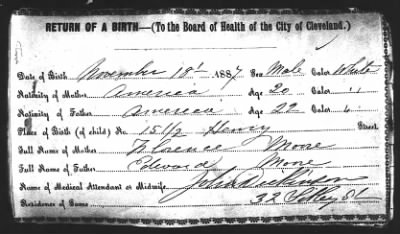 RETURN OF A BIRTH—(To the Board of Health of the City of Cleveland.)
Date of Birth November 18' 1887 Sex Male Color White
Nativity of Mother America Age 20 Color "
Nativity of Father America Age 22 Color "
Place of Birth (of child) No. 151/2 Henry Street
Full Name of Mother Florence Moore
Full Name of Father Edward Moore
Name of Medical Attendant or Midwife John Dickinson
Residence of Same 32 St